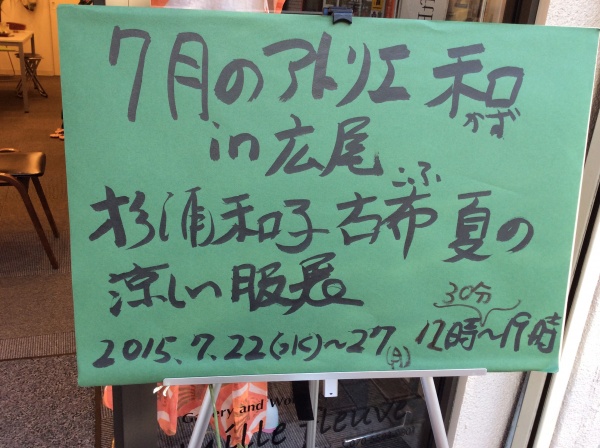 7月のアトリエ 和
かず
in 広尾
こふ
杉浦和子 古布 夏の
涼しい服展
30分
2015.7.22(水)~27(月) 12時~19時
Gallery and Wo
ille-fleuve